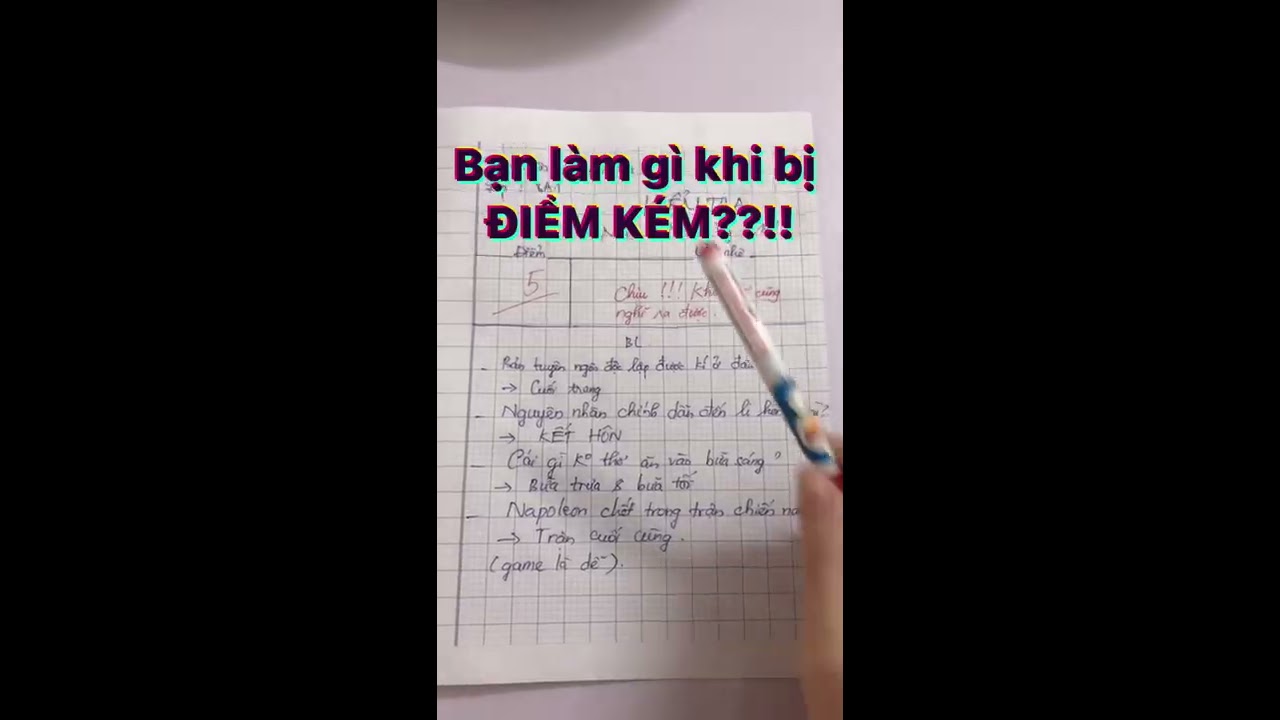 Bạn làm gì khi bị
ĐIỀM KÉM??!!
KIỂM TRA
Điểm
5
Chịu !!! cũng
nghĩ ra được.
BL
- Bản tuyên ngôn độc lập được kí ở đâu
→ Cuối trang
- Nguyên nhân chính dẫn đến li
→ KẾT HÔN
- Cái gì K° thể ăn vào bữa sáng?
→ Bữa trưa & bữa tối
- Napoleon chết trong trận chiến
→ Trận cuối cùng.
(game là dễ).